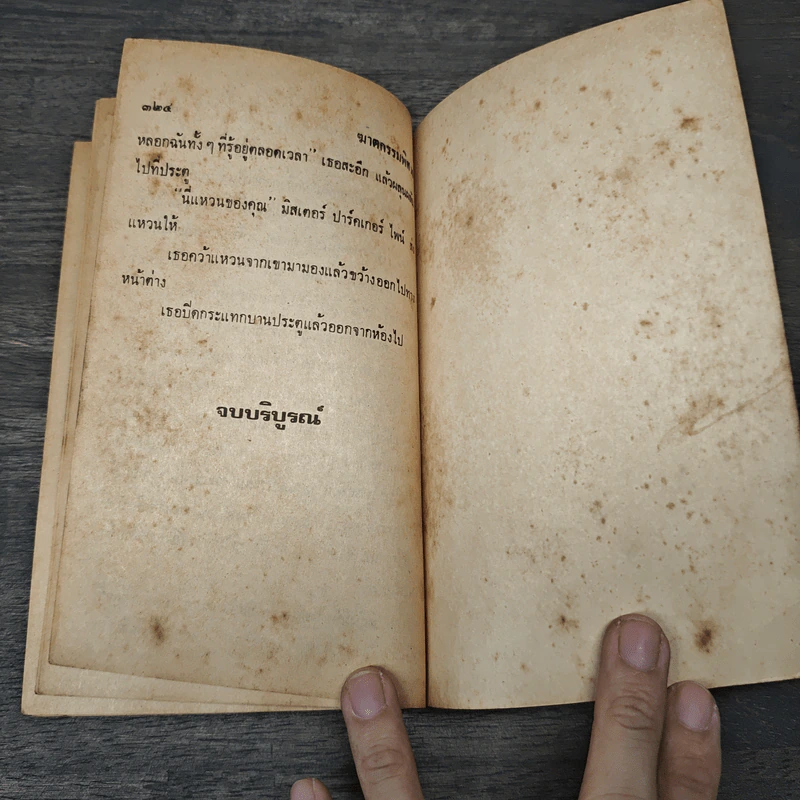 ๓๒๔
ฆาตกรรม
หลอกฉันทั้ง ๆ ที่รู้อยู่ตลอดเวลา” เธอสะอึก แล้ว
ไปที่ประตู
“นี่แหวนของคุณ” มิสเตอร์ ปาร์คเกอร์ ไพน์
แหวนให้
เธอคว้าแหวนจากเขามามองแล้วขว้างออกไป
หน้าต่าง
เธอปิดกระแทกบานประตูแล้วออกจากห้องไป
จบบริบูรณ์